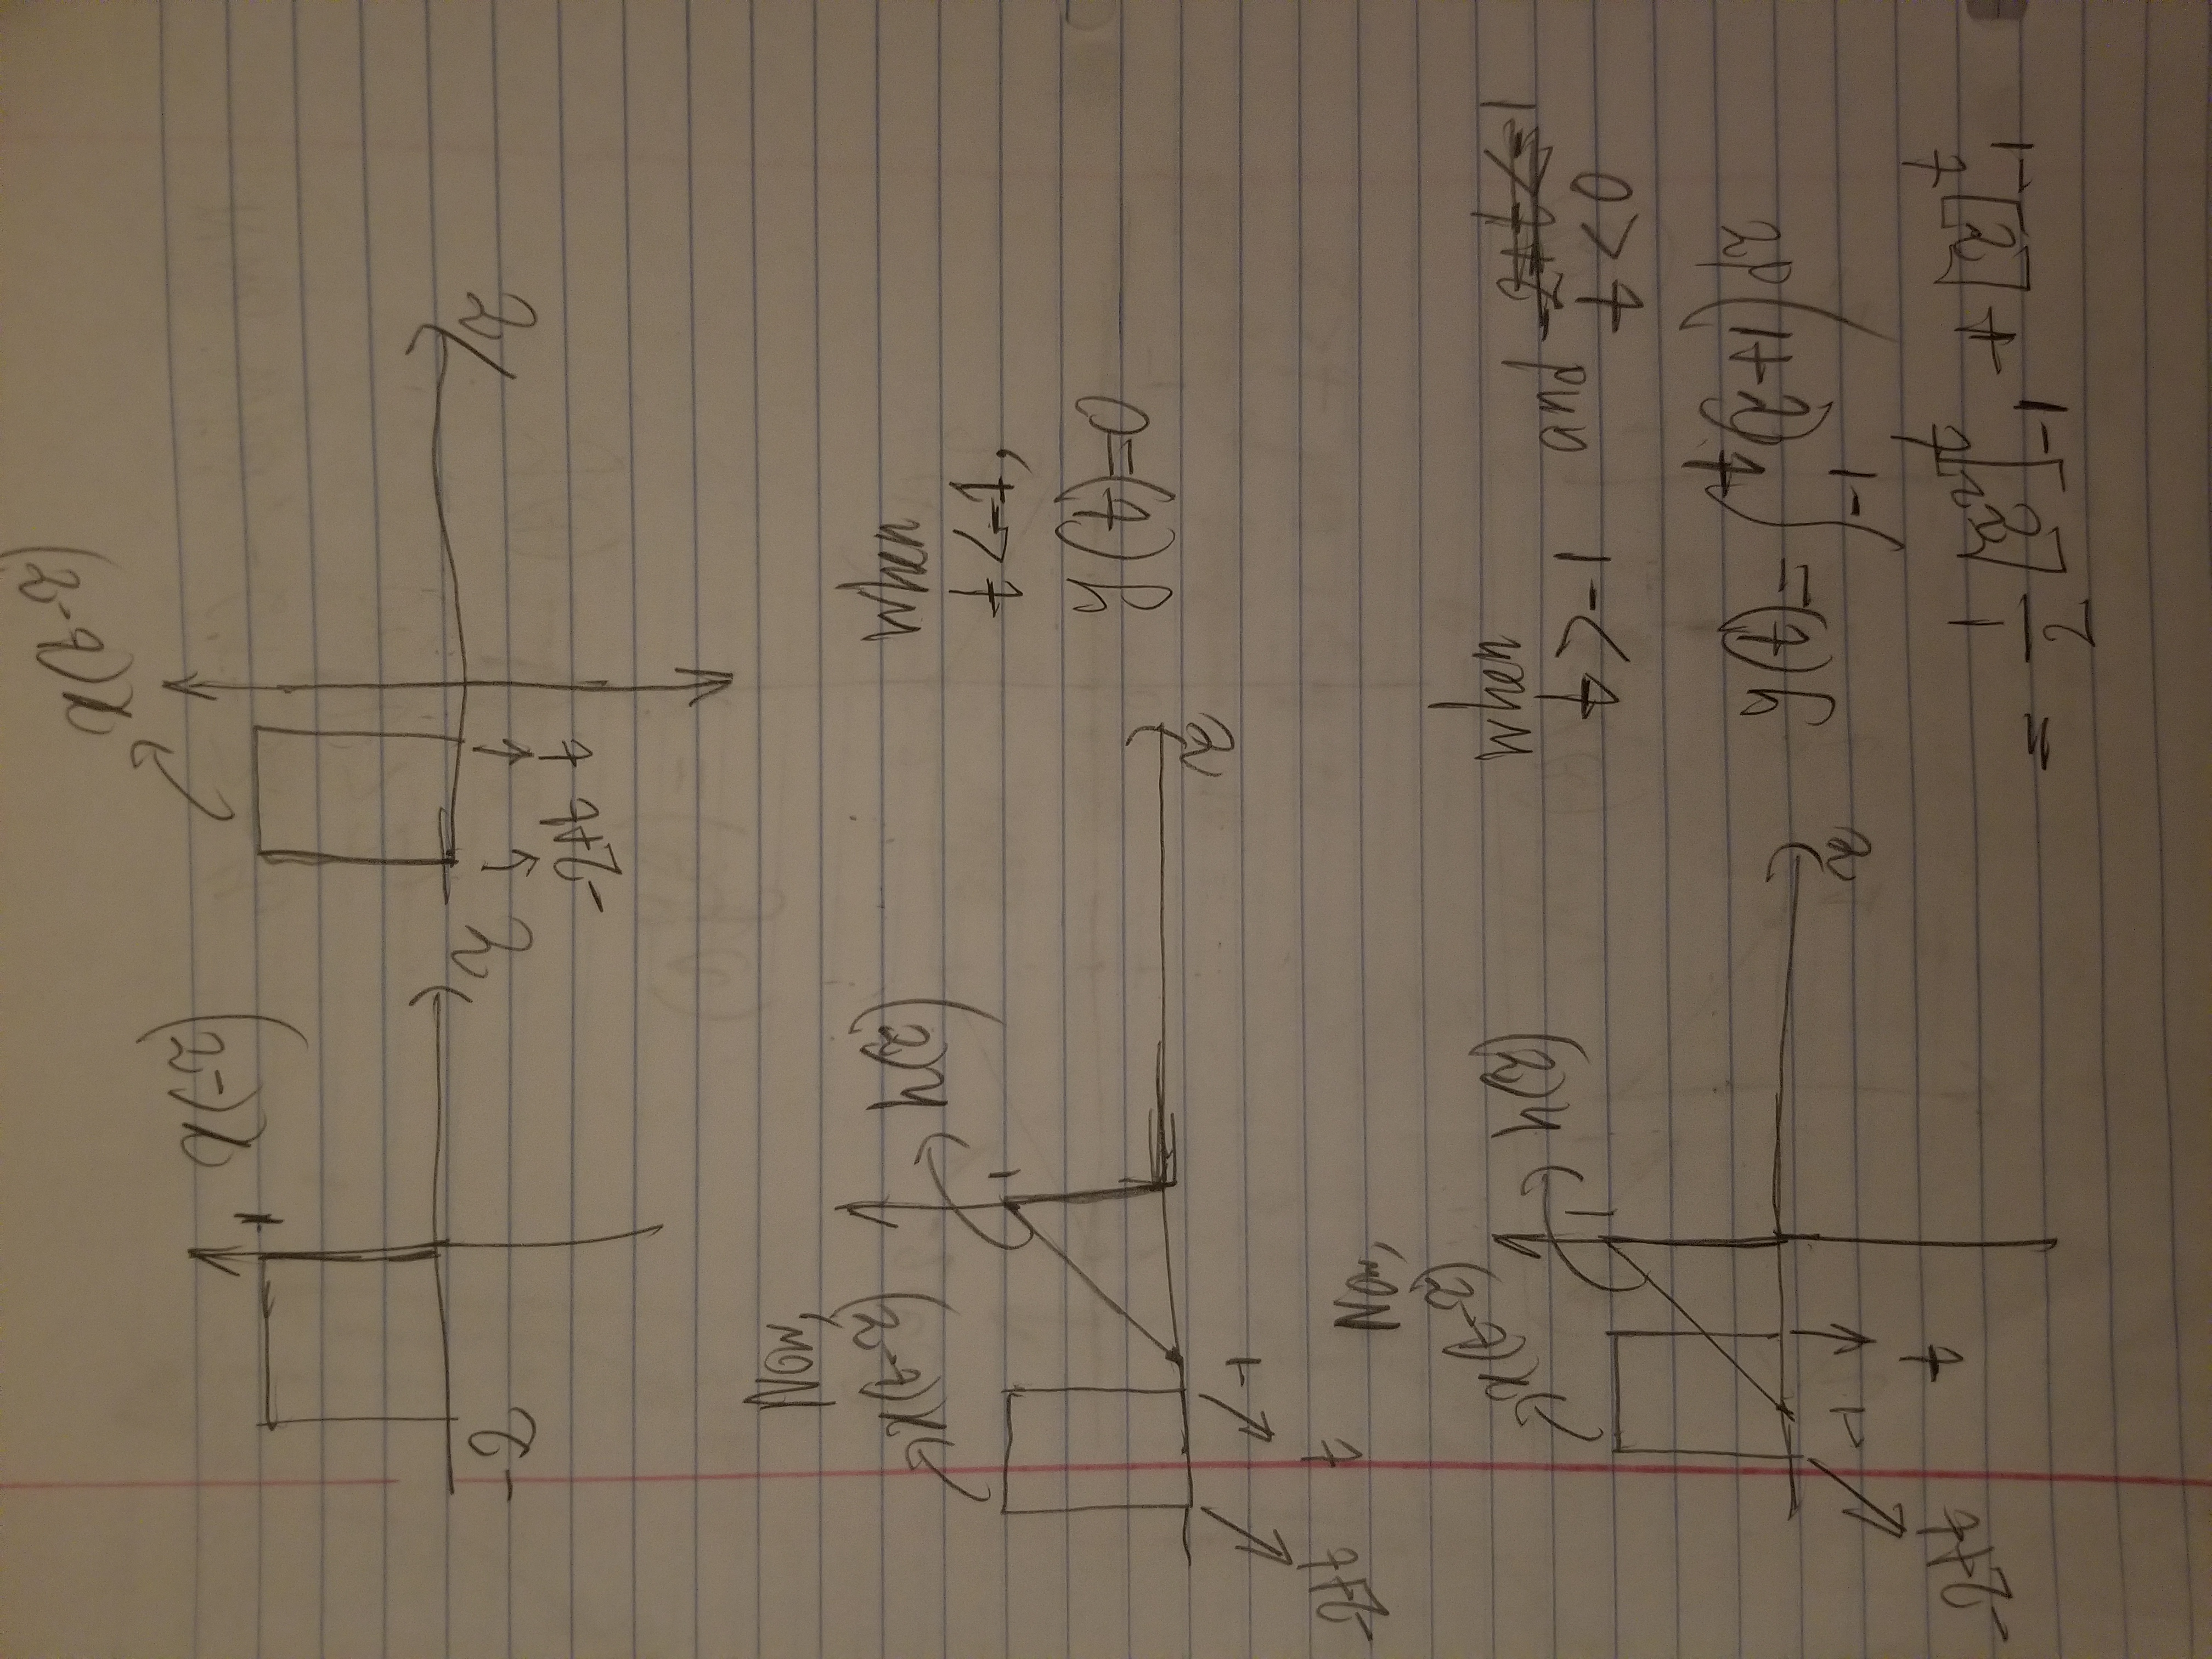 x(-τ)
1
-2
τ
x(t-τ)
-2+t
t
τ
Now,
x(t-τ)
h(τ)
1
-1
-2+t
t
τ
when
t<-1,
y(t)=0
Now,
x(t-τ)
h(τ)
1
-1
-2+t
t
τ
when
t>-1 and -2+t<-1
t<0
y(t)=∫_{-1}^{t}(τ+1)dτ
= 1/2 [τ²]_{-1}^{t} + [τ]_{-1}^{t}